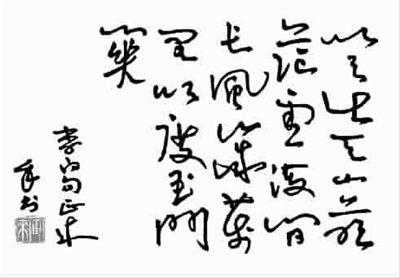 明月出天山蒼
茫雲海間
長風幾萬
里吹度玉門
關
李白句